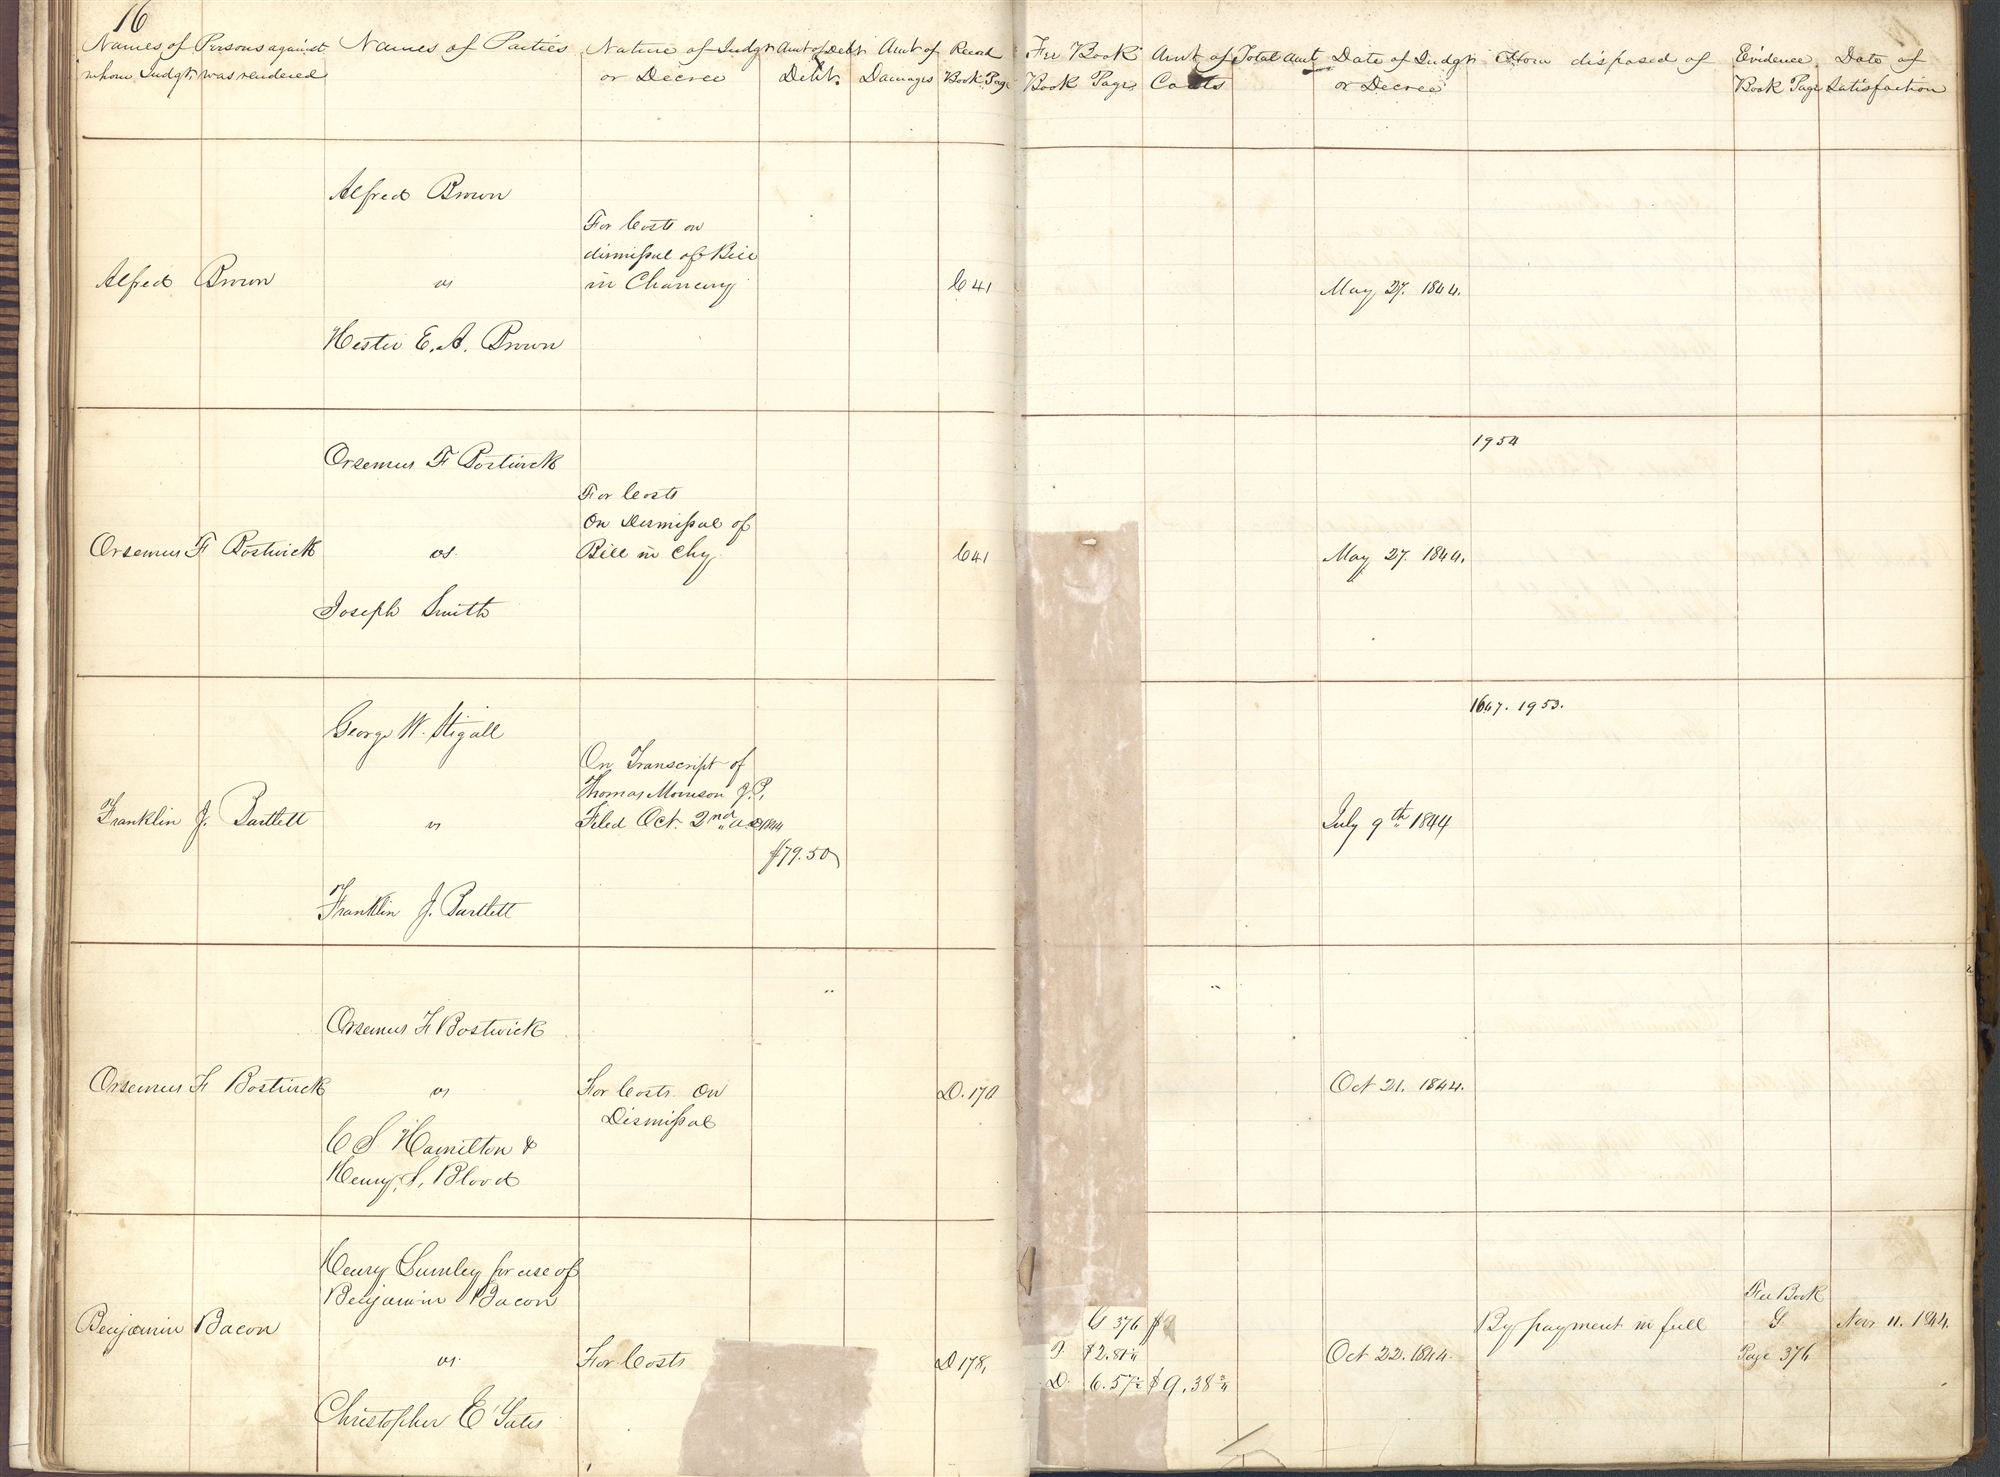 16
Names of Persons against whom Judgt was rendered
Names of Parties
Nature of Judgt or Decree
Amt of Debt
Debt.
Amt of Damages
Record Book Page
Fee Book
Book Page
Amt of Costs
Total Amt
Date of Judgt or Decree
How disposed of
Evidence Book Page
Date of Satisfaction
Alfred Brown
For Costs on
dismissal of Bill
Alfred Brown vs in Chancery C 41 May 27. 1844.
Hester E. A. Brown
1954
Orsemus F Bostwick
For Costs
On Dismissal of
Orsemus F Bostwick vs. Bill in Chy. C 41 May 27. 1844.
Joseph Smith
1647. 1953.
George W. Stigall
On Transcript of
Thomas Morrison J. P.
Franklin J. Bartlett vs Filed Oct. 2nd A D 1844 July 9th 1844
$79.50
Franklin J. Bartlett
Orsemus F Bostwick
Orsemus F Bostwick vs For Costs On D. 170 Oct 21. 1844.
Dismissal
C S Hamilton &
Henry S. Blood
Henry Lumley for use of
Benjamin Bacon
Fee Book
Benjamin Bacon G 376 By payment in full G Nov 11. 1844.
vs. For Costs D 178, P. $2.81 1/4 Oct 22. 1844. Page 376
D. 6.57 1/2 $9.38 3/4
Christopher E Yates